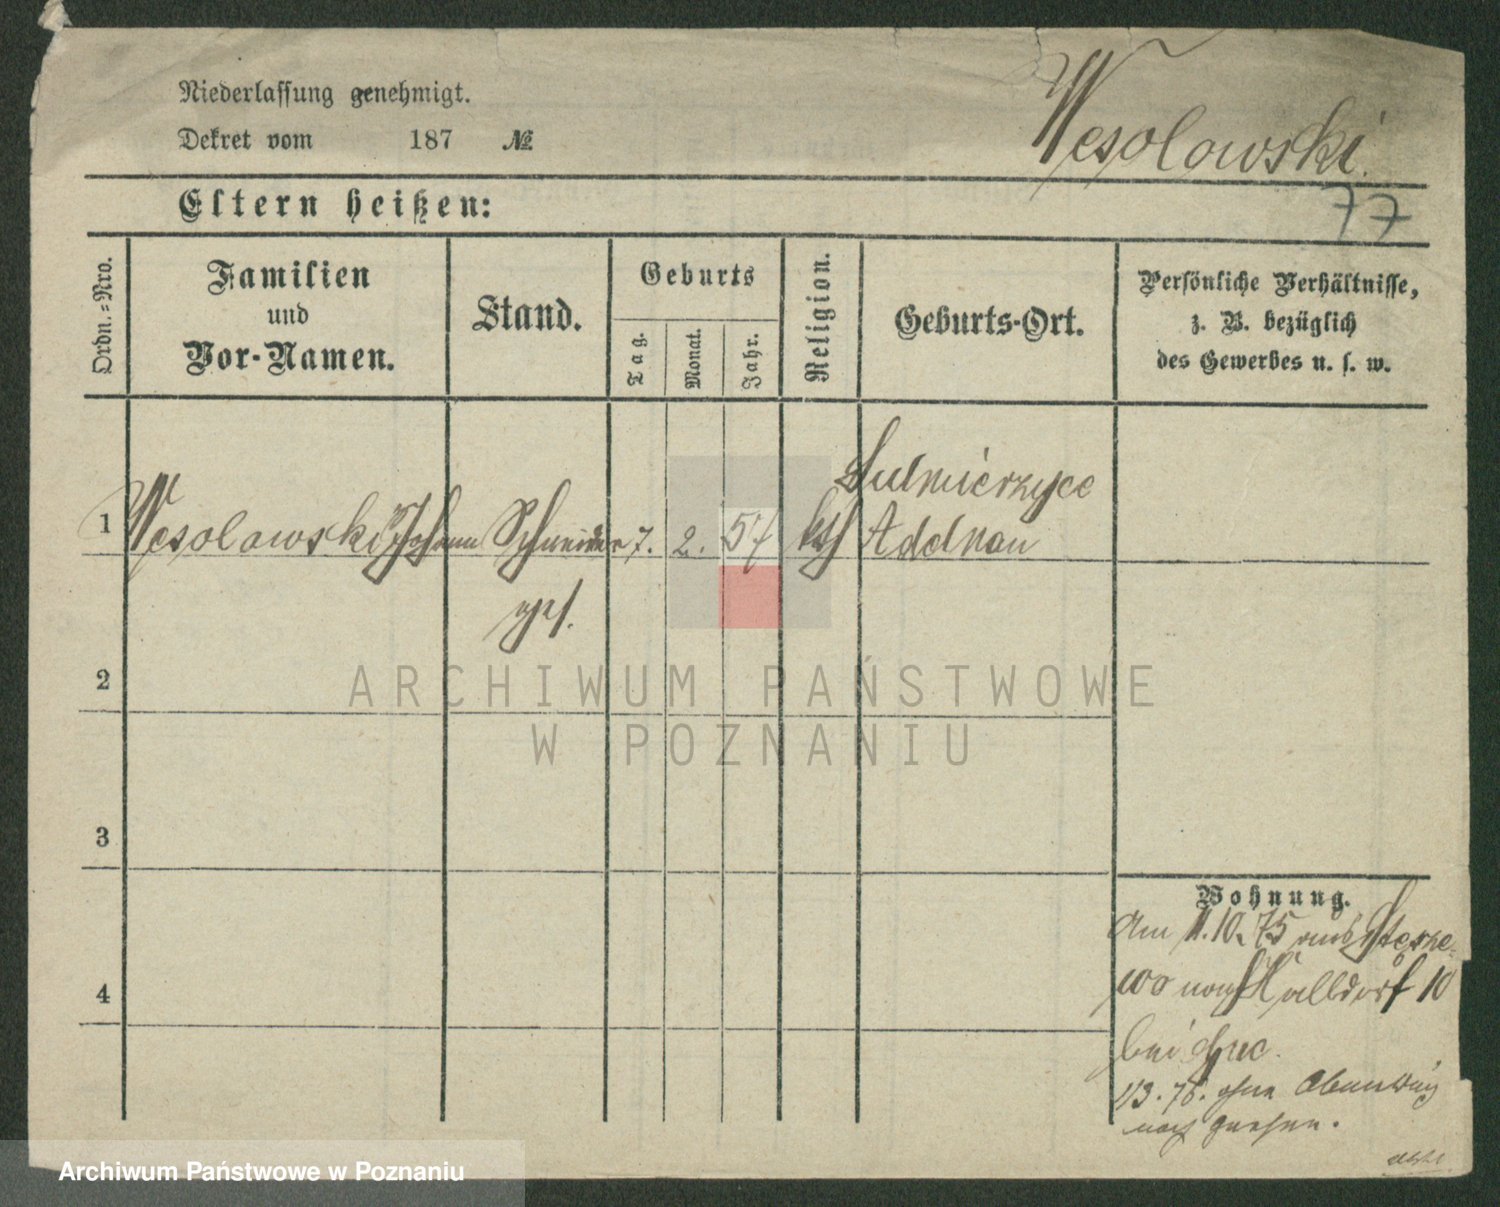 Niederlassung genehmigt.
Dekret vom 187 №
Wesolowski.
77
Eltern heißen:
Ordn.-Nro.
Familien
und
Vor-Namen.
Stand.
Geburts
Tag.
Monat.
Jahr.
Religion.
Geburts-Ort.
Persönliche Verhältnisse,
z. B. bezüglich
des Gewerbes u. s. w.
Sulmierzyce
1 Wesolowski Johann Schneider 7. 2. 57 kth Adelnau
2
3
4
Wohnung.
Am 11.10.75 aus
wo nach Halldorf 10
bei
1/3. 76. ohne Abmeldung
nach Gnesen.
ARCHIWUM PAŃSTWOWE
W POZNANIU
Archiwum Państwowe w Poznaniu